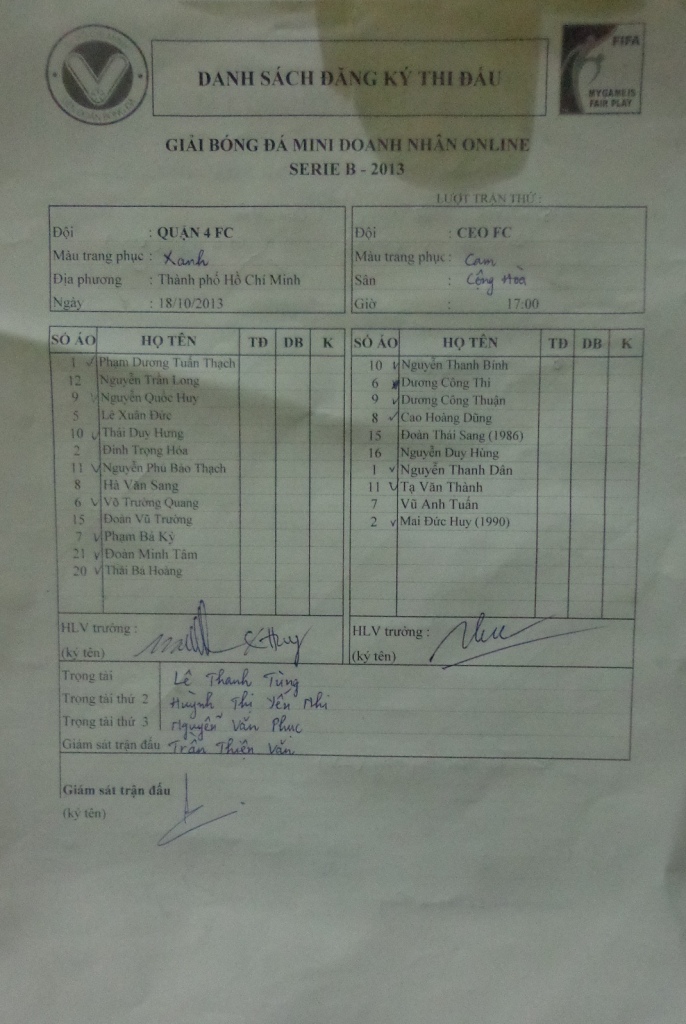 DANH SÁCH ĐĂNG KÝ THI ĐẤU
FIFA
MY GAME IS
FAIR PLAY
GIẢI BÓNG ĐÁ MINI DOANH NHÂN ONLINE
SERIE B - 2013
LƯỢT TRẬN THỨ :
Đội : QUẬN 4 FC
Màu trang phục : Xanh
Địa phương : Thành phố Hồ Chí Minh
Ngày : 18/10/2013
Đội : CEO FC
Màu trang phục : Cam
Sân : Cộng Hòa
Giờ : 17:00
SỐ ÁO HỌ TÊN TĐ DB K
1 ✓ Phạm Dương Tuấn Thạch
12 Nguyễn Trần Long
9 ✓ Nguyễn Quốc Huy
5 Lê Xuân Đức
10 ✓ Thái Duy Hưng
2 Đinh Trọng Hóa
11 ✓ Nguyễn Phú Bảo Thạch
8 Hà Văn Sang
6 ✓ Võ Trường Quang
15 Đoàn Vũ Trường
7 ✓ Phạm Bá Kỳ
21 ✓ Đoàn Minh Tâm
20 ✓ Thái Bá Hoàng
SỐ ÁO HỌ TÊN TĐ DB K
10 ✓ Nguyễn Thanh Bình
6 Dương Công Thi
9 ✓ Dương Công Thuận
8 ✓ Cao Hoàng Dũng
15 Đoàn Thái Sang (1986)
16 Nguyễn Duy Hùng
1 ✓ Nguyễn Thanh Dân
11 ✓ Tạ Văn Thành
7 Vũ Anh Tuấn
2 ✓ Mai Đức Huy (1990)
HLV trưởng :
(ký tên)
HLV trưởng :
(ký tên)
Trọng tài Lê Thanh Tùng
Trọng tài thứ 2 Huỳnh Thị Yến Nhi
Trọng tài thứ 3 Nguyễn Văn Phục
Giám sát trận đấu Trần Thiện Văn
Giám sát trận đấu
(ký tên)